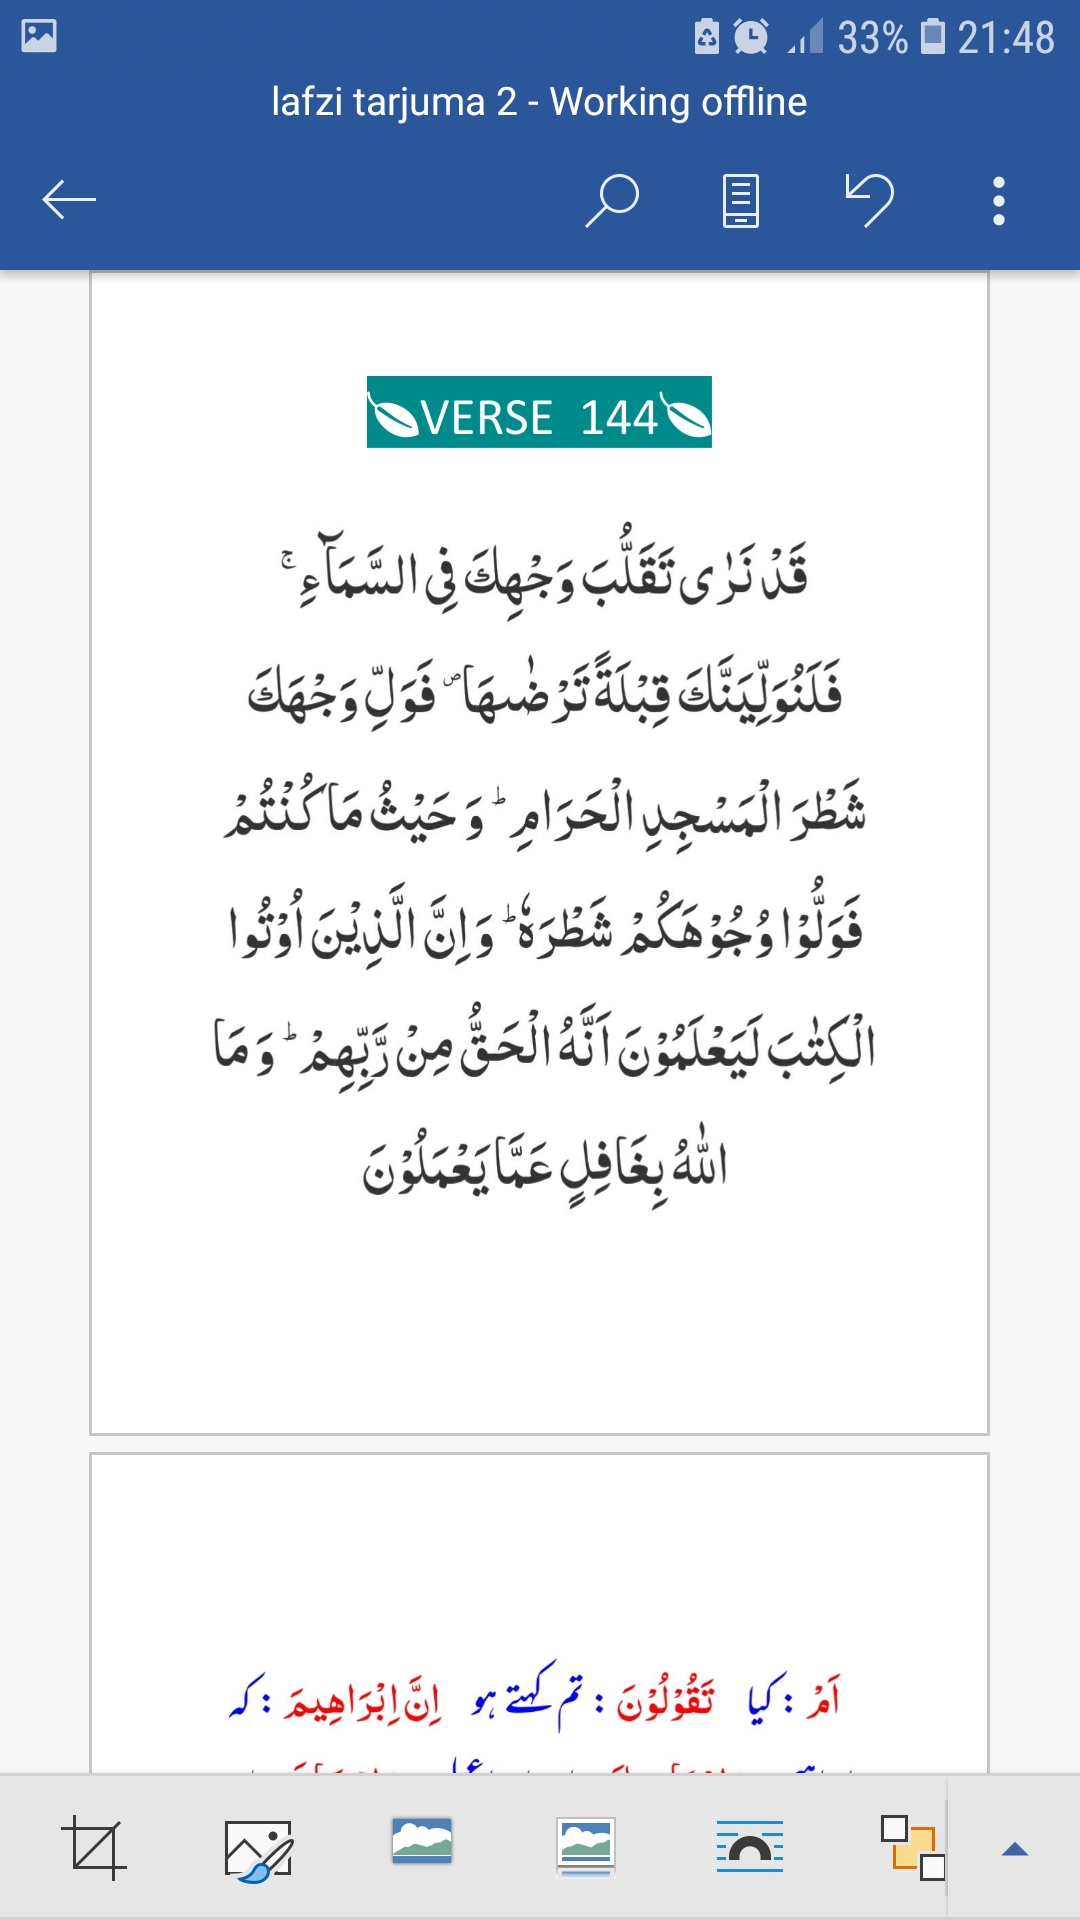 33% 21:48
lafzi tarjuma 2 - Working offline
VERSE 144
قَدْ نَرٰى تَقَلُّبَ وَجْهِكَ فِي السَّمَآءِ ۚ
فَلَنُوَلِّيَنَّكَ قِبْلَةً تَرْضٰىهَا ۪ فَوَلِّ وَجْهَكَ
شَطْرَ الْمَسْجِدِ الْحَرَامِ ؕ وَ حَيْثُ مَا كُنْتُمْ
فَوَلُّوْا وُجُوْهَكُمْ شَطْرَهٗ ؕ وَ اِنَّ الَّذِيْنَ اُوْتُوا
الْكِتٰبَ لَيَعْلَمُوْنَ اَنَّهُ الْحَقُّ مِنْ رَّبِّهِمْ ؕ وَ مَا
اللّٰهُ بِغَافِلٍ عَمَّا يَعْمَلُوْنَ
اَمْ : کیا تَقُوْلُوْنَ : تم کہتے ہو اِنَّ اِبْرَاهِيمَ : کہ